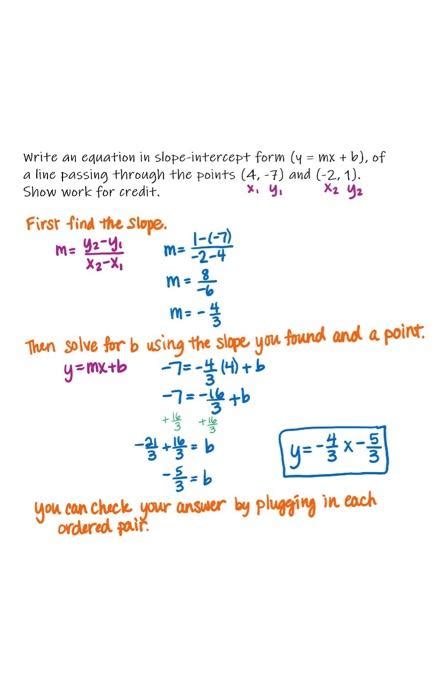 Write an equation in slope-intercept form (y = mx + b), of
a line passing through the points (4, -7) and (-2, 1).
Show work for credit. x₁ y₁ x₂ y₂
First find the slope.
m= y₂-y₁/x₂-x₁ m= 1-(-7)/-2-4
m= 8/-6
m= -4/3
Then solve for b using the slope you found and a point.
y=mx+b -7=-4/3(4)+b
-7=-16/3+b
+16/3 +16/3
-21/3+16/3=b
-5/3=b
y=-4/3x-5/3
you can check your answer by plugging in each
ordered pair.